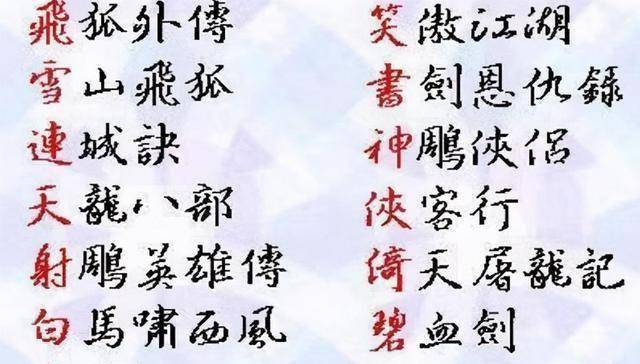 飛狐外傳
雪山飛狐
連城訣
天龍八部
射鵰英雄傳
白馬嘯西風
笑傲江湖
書劍恩仇錄
神鵰俠侶
俠客行
倚天屠龍記
碧血劍